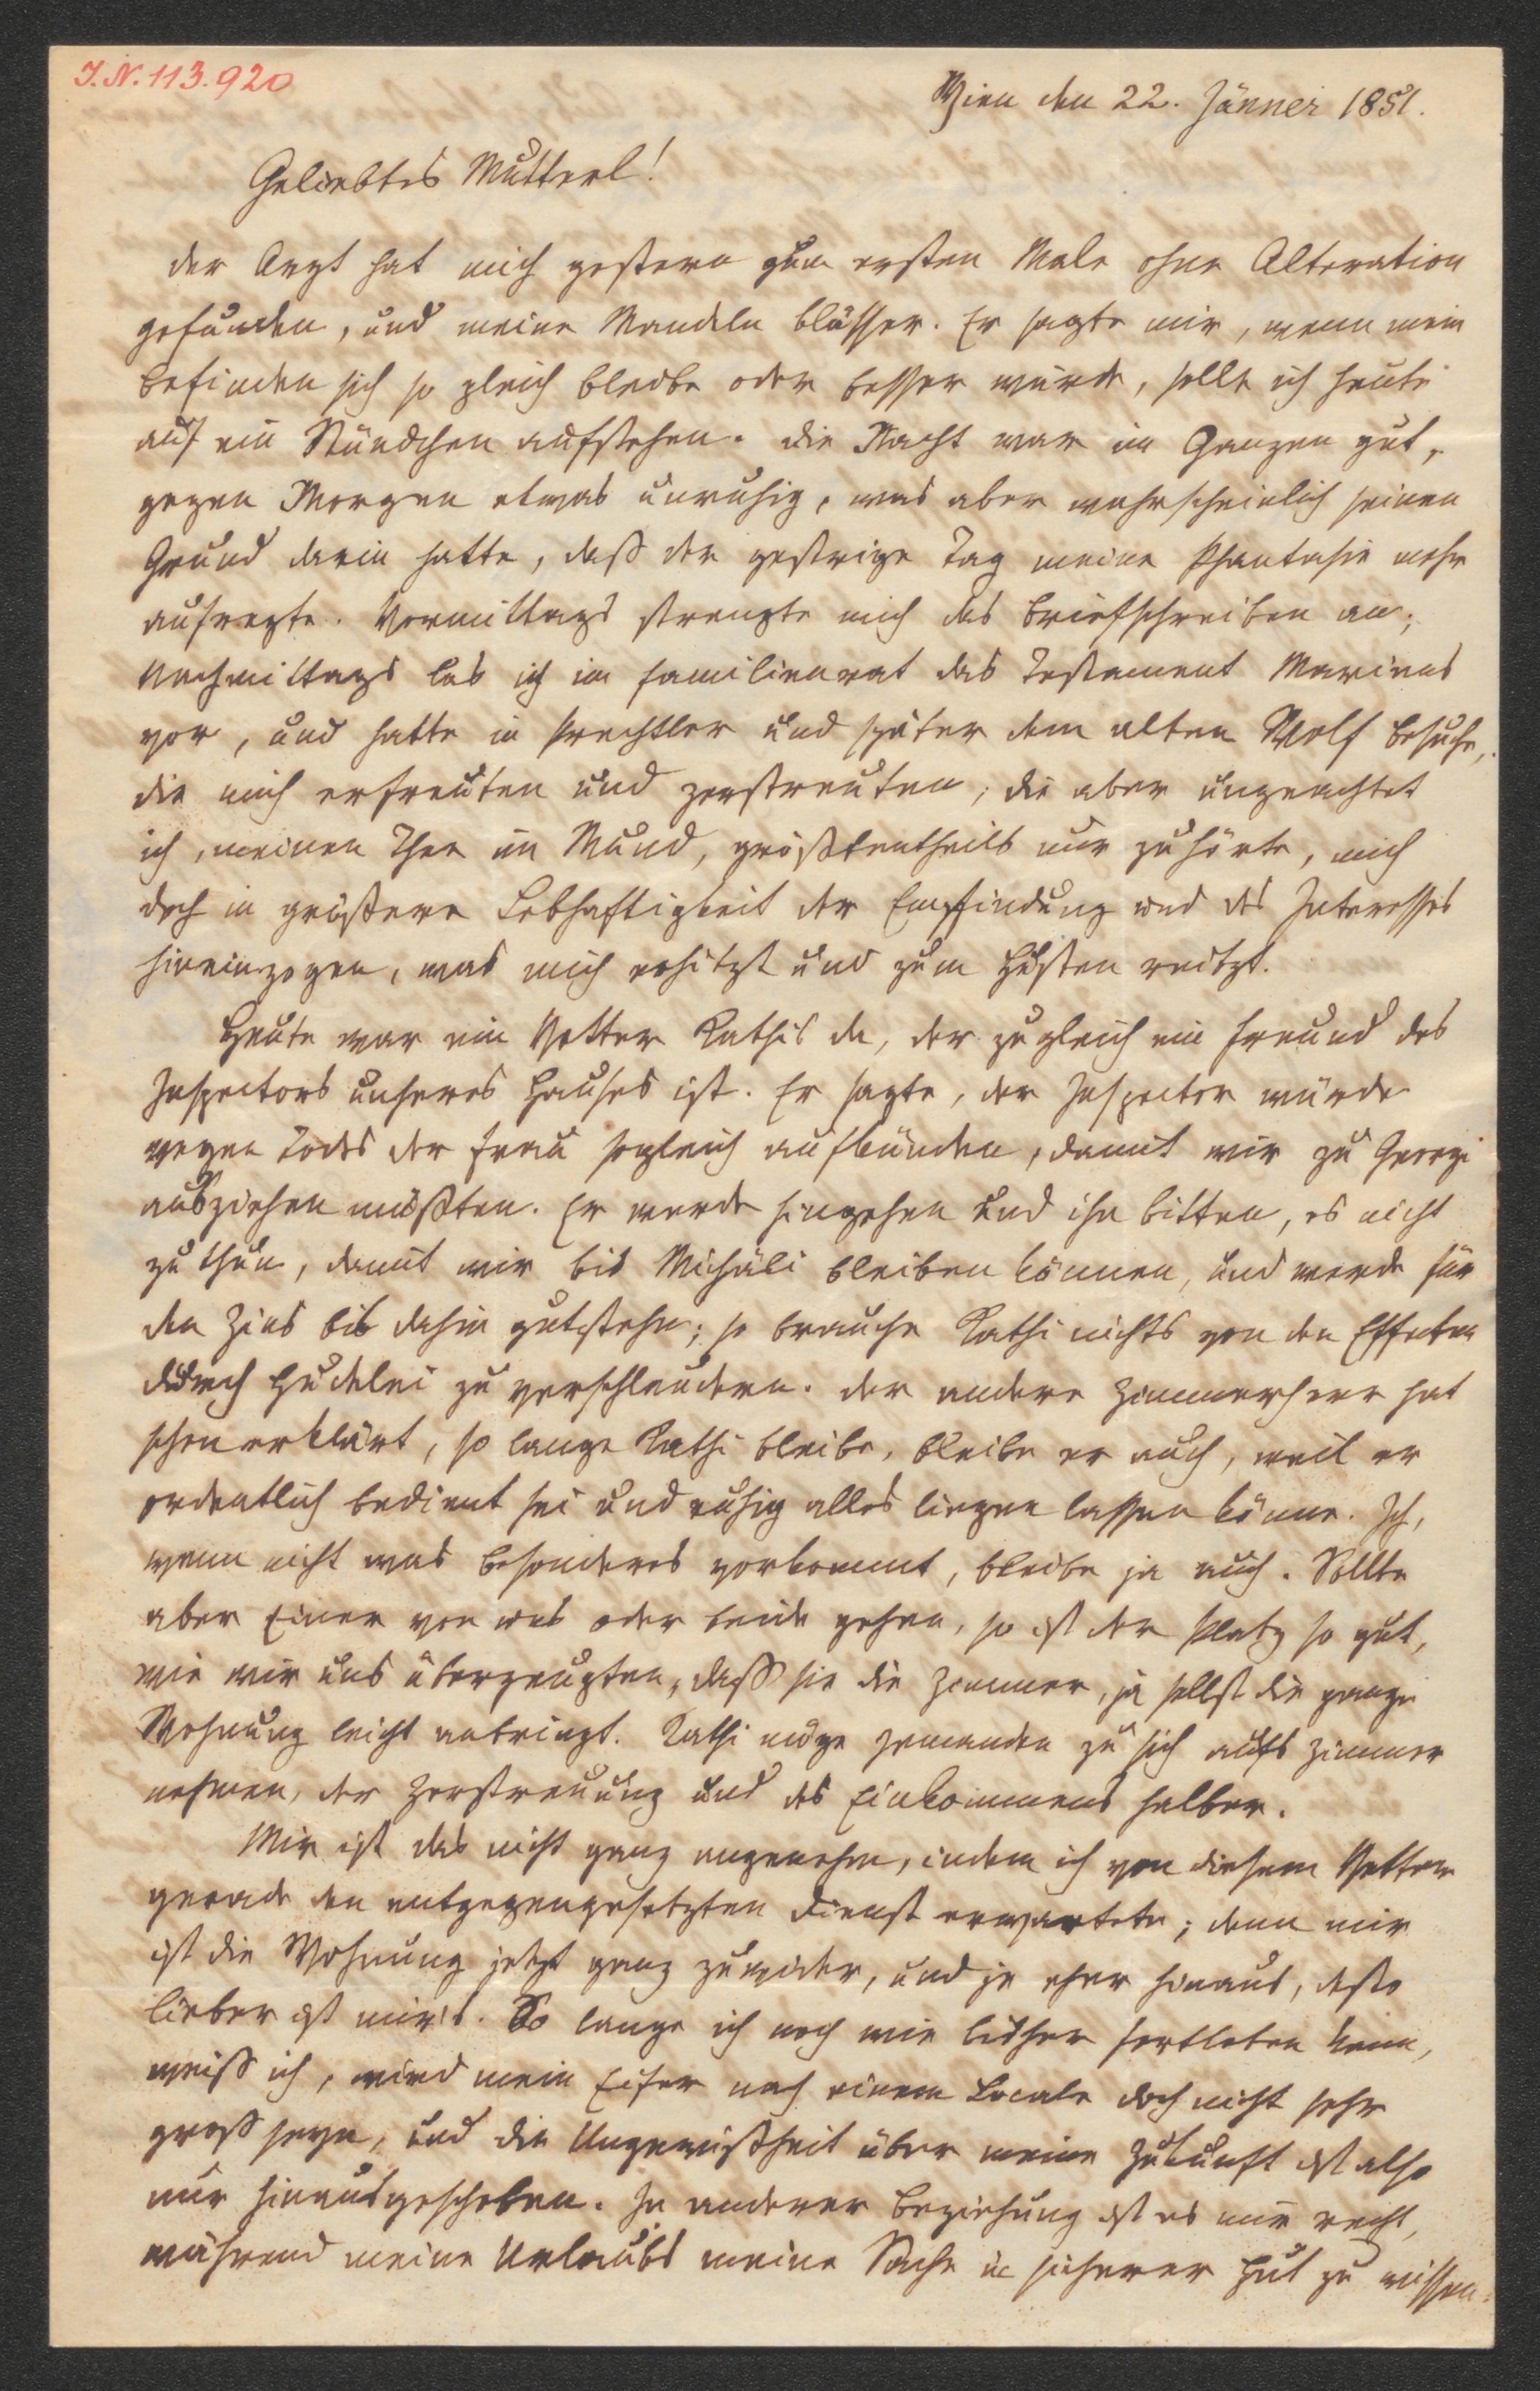 I.N. 113.920
Wien den 22. Jänner 1851.
Geliebtes Mutterl!
der Arzt hat mich gestern zum ersten Male ohne Alteration
gefunden, und meine Mandeln blässer. Er sagte mir, wenn mein
Befinden sich so gleich bleibe oder besser würde, solle ich heute
auf ein Stündchen aufstehen. Die Nacht war im Ganzen gut,
gegen Morgen etwas unruhig, was aber wahrscheinlich seinen
Grund darin hatte, daß der gestrige Tag meine Phantasie mehr
aufregte. Vormittags strengte mich das Briefschreiben an;
Nachmittags las ich im Familienrat das Testament Mariens
vor, und hatte in Prechtler und später dem alten Wolf Besuche,
die mich erfreuten und zerstreuten, die aber ungeachtet
ich, meinen Thee im Mund, größtentheils nur zuhörte, mich
doch in größere Lebhaftigkeit der Empfindung und des Interesses
hineinzogen, was mich erhitzt und zum Husten reitzt.
Heute war ein Vetter Kathis da, der zugleich ein Freund des
Inspectors unseres Hauses ist. Er sagte, der Inspector würde
wegen Todes der Frau sogleich aufkünden, damit wir zu Georgi
ausziehen müßten. Er werde hingehen und ihn bitten, es nicht
zu thun, damit wir bis Michäli bleiben können, und werde für
den Zins bis dahin gutstehn; so brauche Kathi nichts von den Effecten
durch Hudelei zu verschleudern. Der andere Zimmerherr hat
schon erklärt, so lange Kathi bleibe, bleibe er auch, weil er
ordentlich bedient sei und ruhig alles liegen lassen könne. Ich,
wenn nicht was besonderes vorkommt, bleibe ja auch. Sollte
aber Einer von uns oder beide gehen, so ist der Platz so gut,
wie wir uns überzeugten, daß sie die Zimmer, ja selbst die ganze
Wohnung leicht anbringt. Kathi möge jemanden zu sich aufs Zimmer
nehmen, der Zerstreuung und des Einkommens halber.
Mir ist das nicht ganz angenehm, indem ich von diesem Vetter
gerade den entgegengesetzten Dienst erwartete; denn mir
ist die Wohnung jetzt ganz zuwider, und je eher hinaus, desto
lieber ist mir's. So lange ich noch wie bisher fortleben kann,
weiß ich, wird mein Eifer nach einem Locale doch nicht sehr
groß seyn, und die Ungewißheit über meine Zukunft ist also
nur hinausgeschoben. In anderer Beziehung ist es mir recht,
während meine Urlaubs meine Sache in sicherer Hut zu wissen.